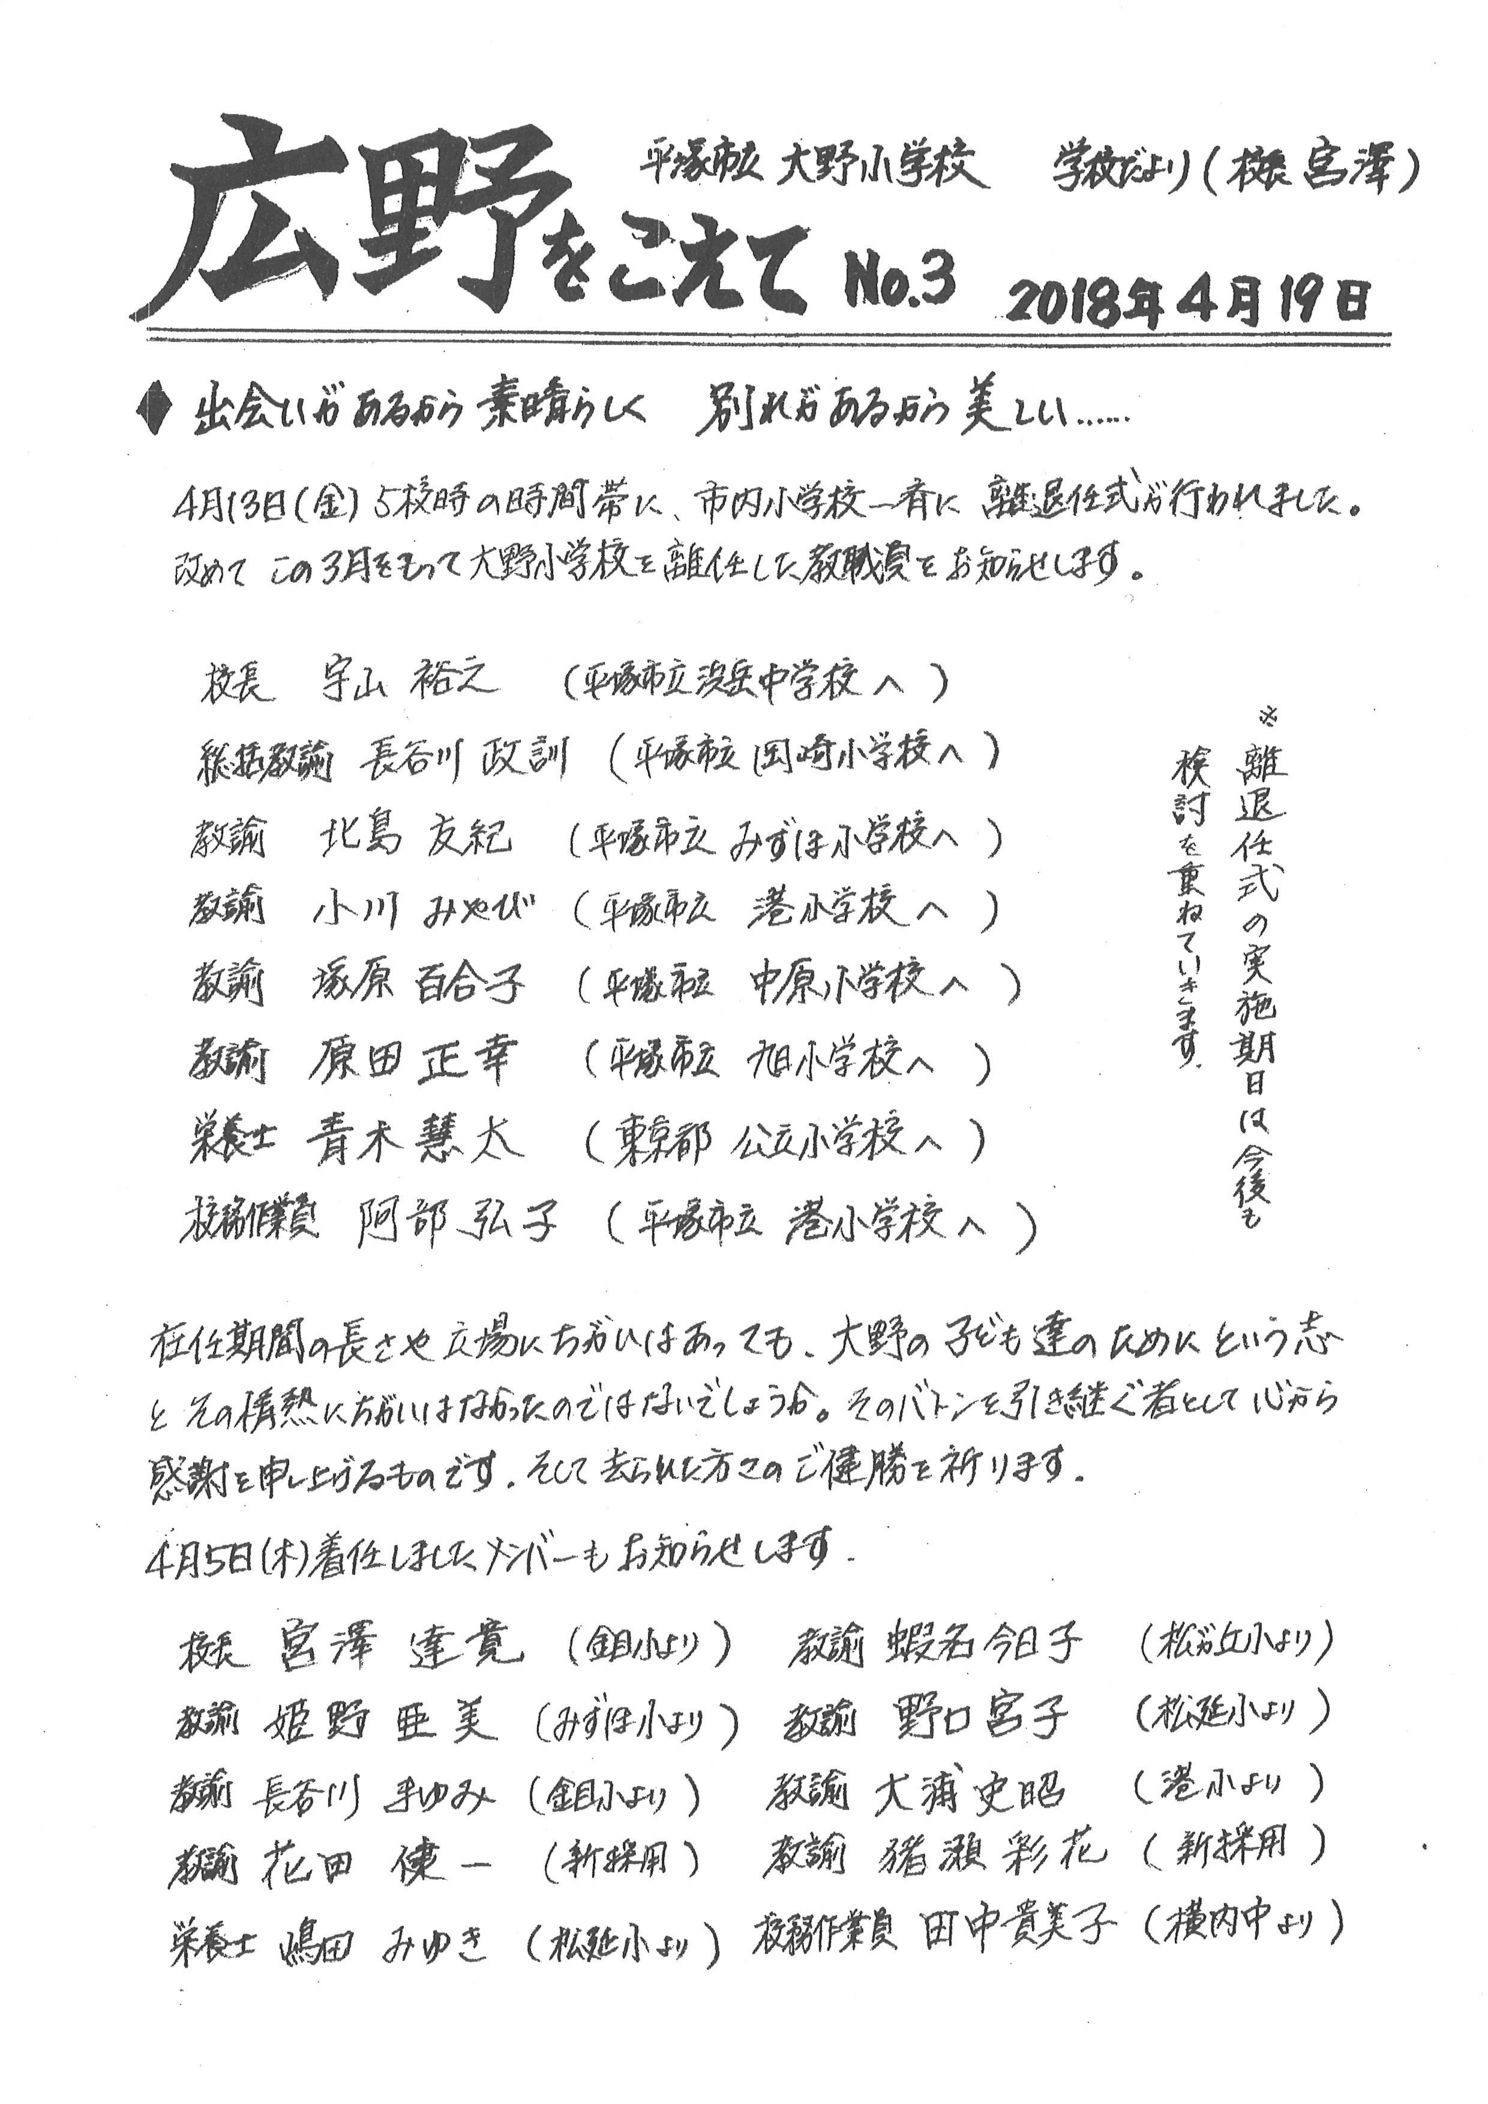 平塚市立 大野小学校　学校だより(校長 宮澤)
広野をこえて No.3 2018年4月19日
◆ 出会いがあるから素晴らしく　別れがあるから美しい……
4月13日(金)5校時の時間帯に、市内小学校一斉に離退任式が行われました。
改めてこの3月をもって大野小学校を離任した教職員をお知らせします。
校長　宇山 裕之　(平塚市立浜岳中学校へ)
総括教諭 長谷川 政訓 (平塚市立 岡崎小学校へ)
教諭　北島 友紀　(平塚市立 みずほ小学校へ)
教諭　小川 みやび (平塚市立 港小学校へ)
教諭　塚原 百合子 (平塚市立 中原小学校へ)
教諭　原田 正幸　(平塚市立 旭小学校へ)
栄養士 青木 慧太　(東京都 公立小学校へ)
校務作業員 阿部 弘子 (平塚市立 港小学校へ)
※離退任式の実施期日は今後も
検討を重ねていきます。
在任期間の長さや立場にちがいはあっても、大野の子ども達のためにという志
とその情熱にちがいはなかったのではないでしょうか。そのバトンを引き継ぐ者として心から
感謝を申し上げるものです。そして去られた方々のご健勝を祈ります。
4月5日(木)着任しましたメンバーもお知らせします。
校長 宮澤 達寛 (金目小より)　教諭 蝦名今日子 (松が丘小より)
教諭 姫野 亜美 (みずほ小より)　教諭 野口宮子 (松延小より)
教諭 長谷川 まゆみ (金目小より)　教諭 大浦史昭 (港小より)
教諭 花田 健一 (新採用)　教諭 猪瀬彩花 (新採用)
栄養士 嶋田 みゆき (松延小より)　校務作業員 田中貴美子 (横内中より)